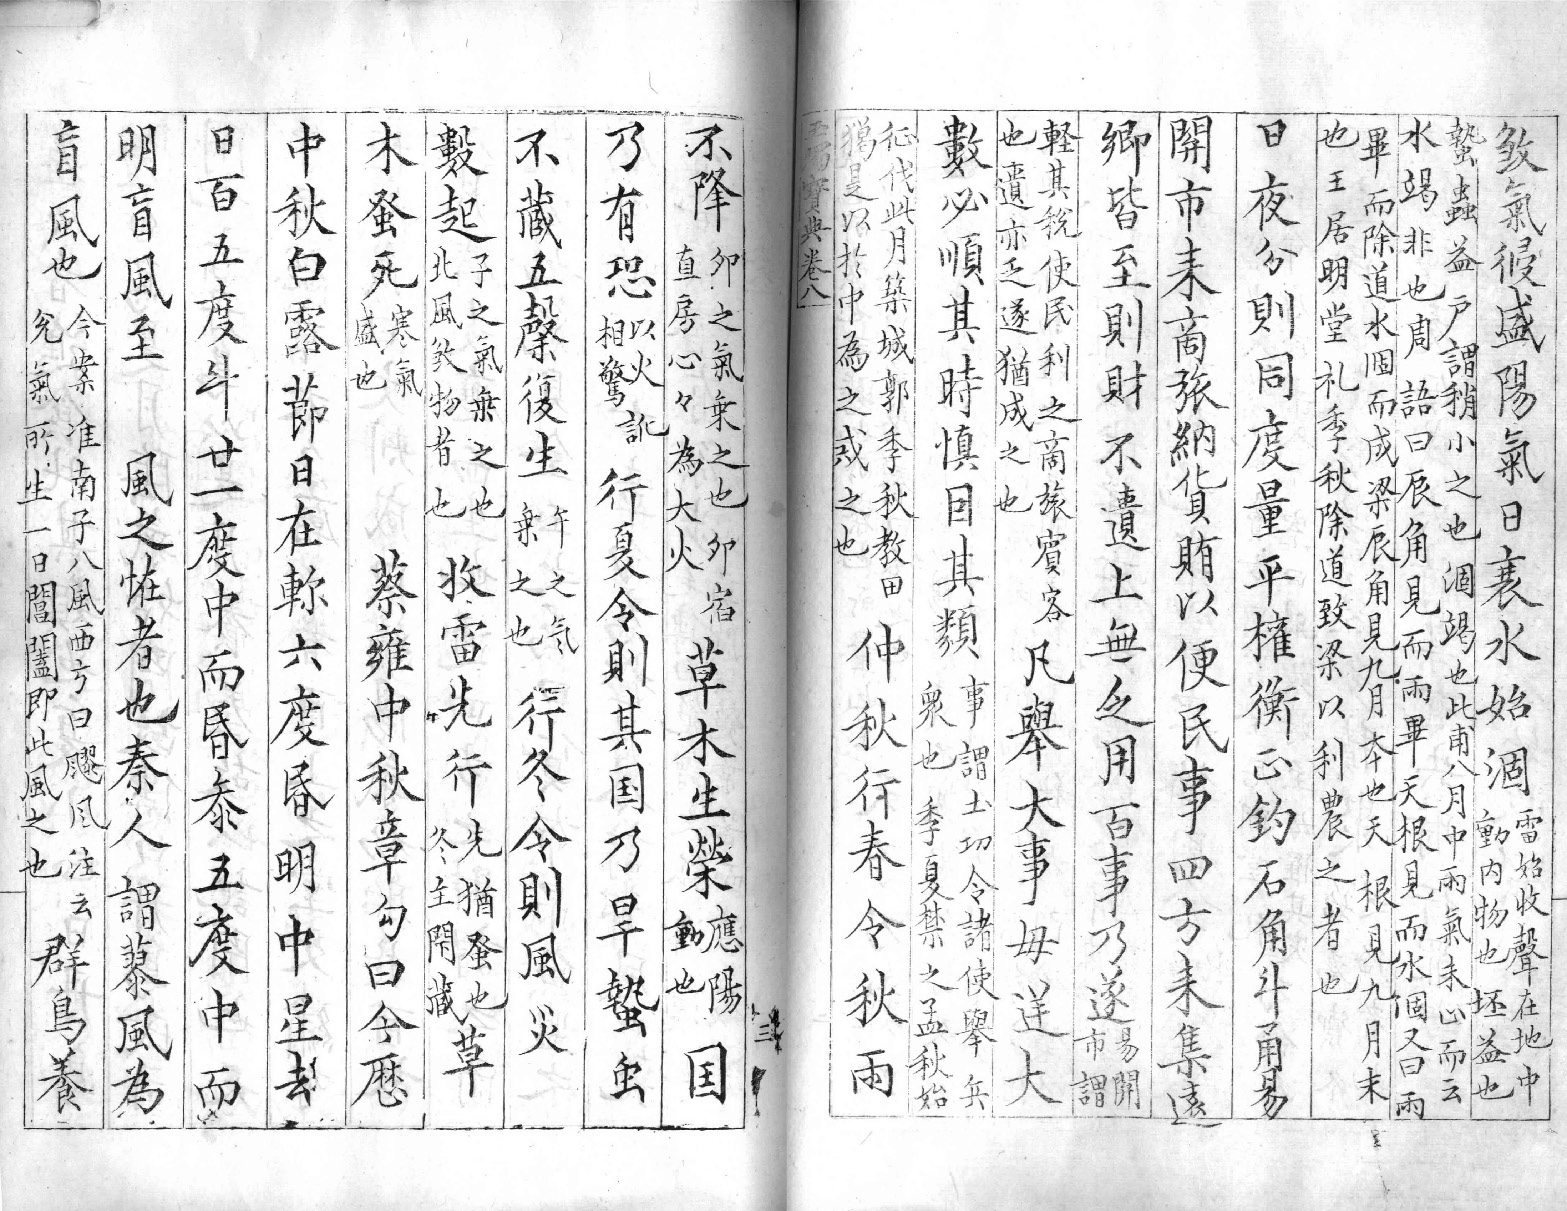 煞氣侵盛陽氣日衰水始涸雷始收聲在地中動内物也坯益也
蟄蟲益戸謂稍小之也涸竭也此甫八月中雨氣未止而云
水竭非也周語曰辰角見而雨畢天根見而水涸又曰雨
畢而除道水涸而成梁辰角見九月本也天根見九月末
也王居明堂礼季秋除道致梁以利農之者也
日夜分則同度量平權衡正鈞石角斗甬易
開市来商旅納貨賄以便民事四方来集遠
鄉皆至則財不遺上無乏用百事乃遂易開市謂
軽其税使民利之商旅賓客
也遺亦乏遂猶成之也凡舉大事毋逆大
數必順其時慎因其類事謂土功令諸使舉兵衆也季夏禁之孟秋始
征伐此月築城郭季秋教田
猶是以於中為之或之也仲秋行春令秋雨
玉燭寳典巻八
不降卯之氣乗之也卯宿直房心々為大火草木生榮應陽動也国
乃有恐以火訛相驚行夏令則其国乃旱蟄虫
不藏五穀復生午之氣乗之也行冬令則風災
數起子之氣乗之也北風煞物者也收雷先行先猶蚤也冬主閇藏草
木蚤死寒氣盛也蔡雍中秋章句曰今歷
中秋白露莭日在軫六度昏明中星去
日百五度斗廿一度中而昏参五度中而
明盲風至風之恠者也秦人謂蓼風為
盲風也今案淮南子八風西方曰飂風注云兊氣所生一曰閶闔即此風之也群鳥養
三